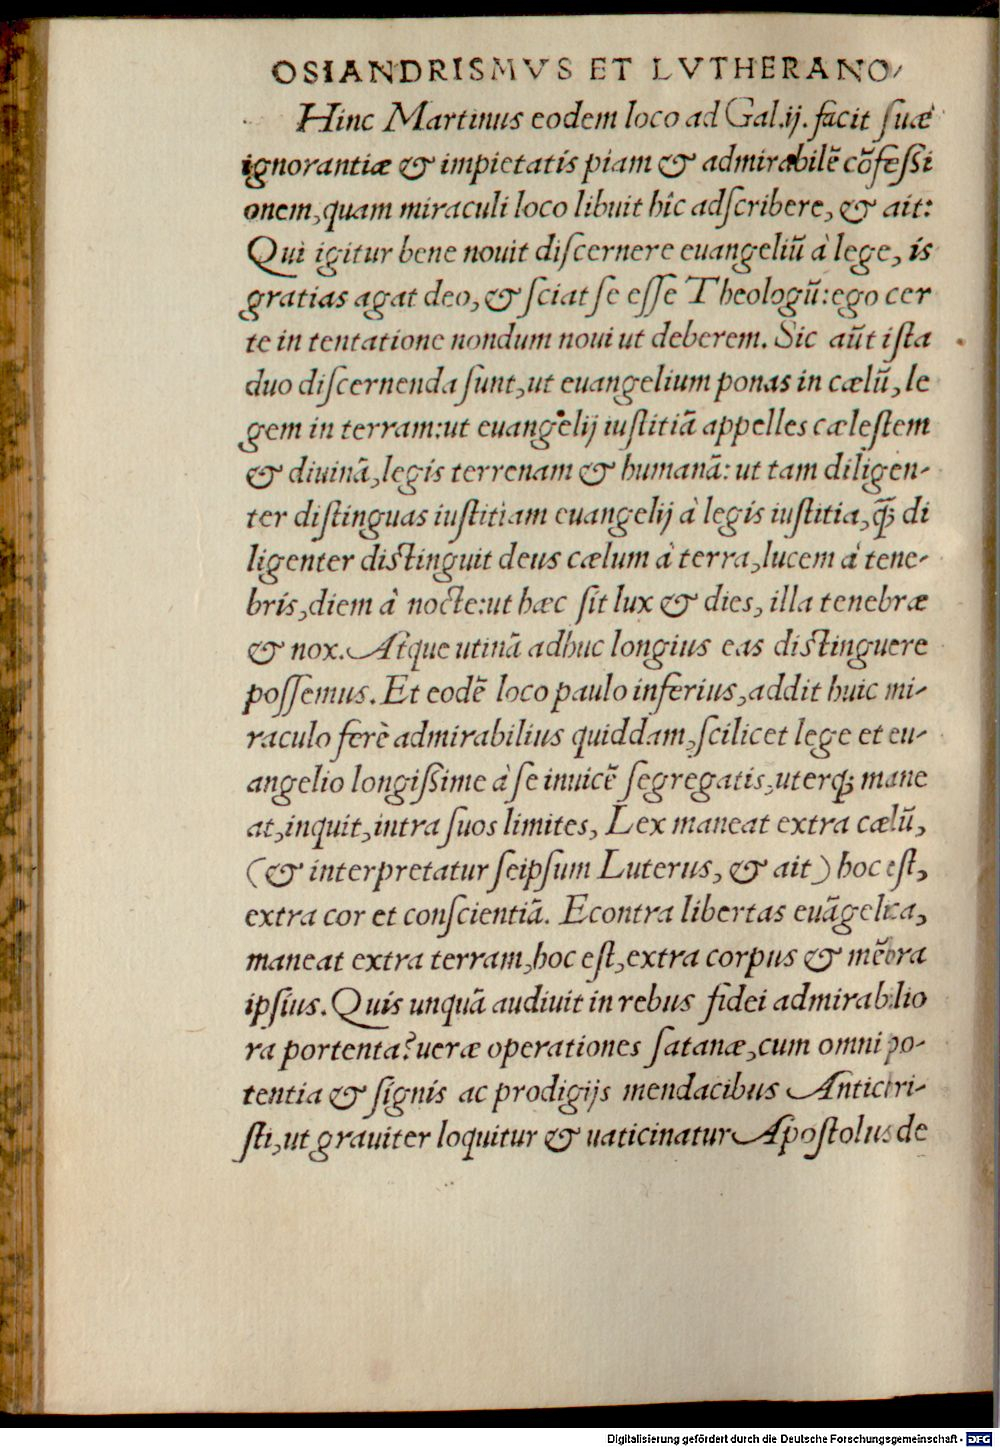 OSIANDRISMVS ET LVTHERANO⸗
Hinc Martinus eodem loco ad Gal.ij. facit suæ
ignorantiæ & impietatis piam & admirabilẽ cõfessi
onem, quam miraculi loco libuit hîc adscribere, & ait:
Qui igitur bene nouit discernere euangeliũ à lege, is
gratias agat deo, & sciat se esse Theologũ: ego cer
te in tentatione nondum noui ut deberem. Sic aũt ista
duo discernenda sunt, ut euangelium ponas in cælũ, le
gem in terram: ut euangelij iustitiã appelles cælestem
& diuinã, legis terrenam & humanã: ut tam diligen⸗
ter distinguas iustitiam euangelij à legis iustitia, q̃ꝫ di
ligenter distinguit deus cælum à terra, lucem à tene⸗
bris, diem à nocte: ut hæc sit lux & dies, illa tenebræ
& nox. Atque utinã adhuc longius eas distinguere
possemus. Et eodẽ loco paulo inferius, addit huic mi⸗
raculo ferè admirabilius quiddam, scilicet lege et eu⸗
angelio longissime à se inuicẽ segregatis, uterqꝫ mane
at, inquit, intra suos limites, Lex maneat extra cælũ,
(& interpretatur seipsum Luterus, & ait) hoc est,
extra cor et conscientiã. Econtra libertas euãgelica,
maneat extra terram, hoc est, extra corpus & mẽbra
ipsius. Quis unquã audiuit in rebus fidei admirabilio
ra portenta? ueræ operationes satanæ, cum omni po⸗
tentia & signis ac prodigijs mendacibus Antichri⸗
sti, ut grauiter loquitur & uaticinatur Apostolus de
Digitalisierung gefördert durch die Deutsche Forschungsgemeinschaft - DFG